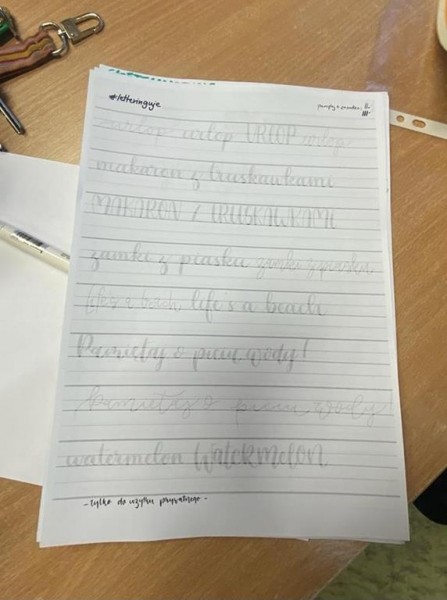 #letteringuje
urlop urlop URLOP urlop
makaron z truskawkami
MAKARON Z TRUSKAWKAMI
zamki z piasku zamki z piasku
life's a beach life's a beach
Pamiętaj o piciu wody!
pamiętaj o piciu wody
watermelon WateRMeLON
- tylko do użytku prywatnego -